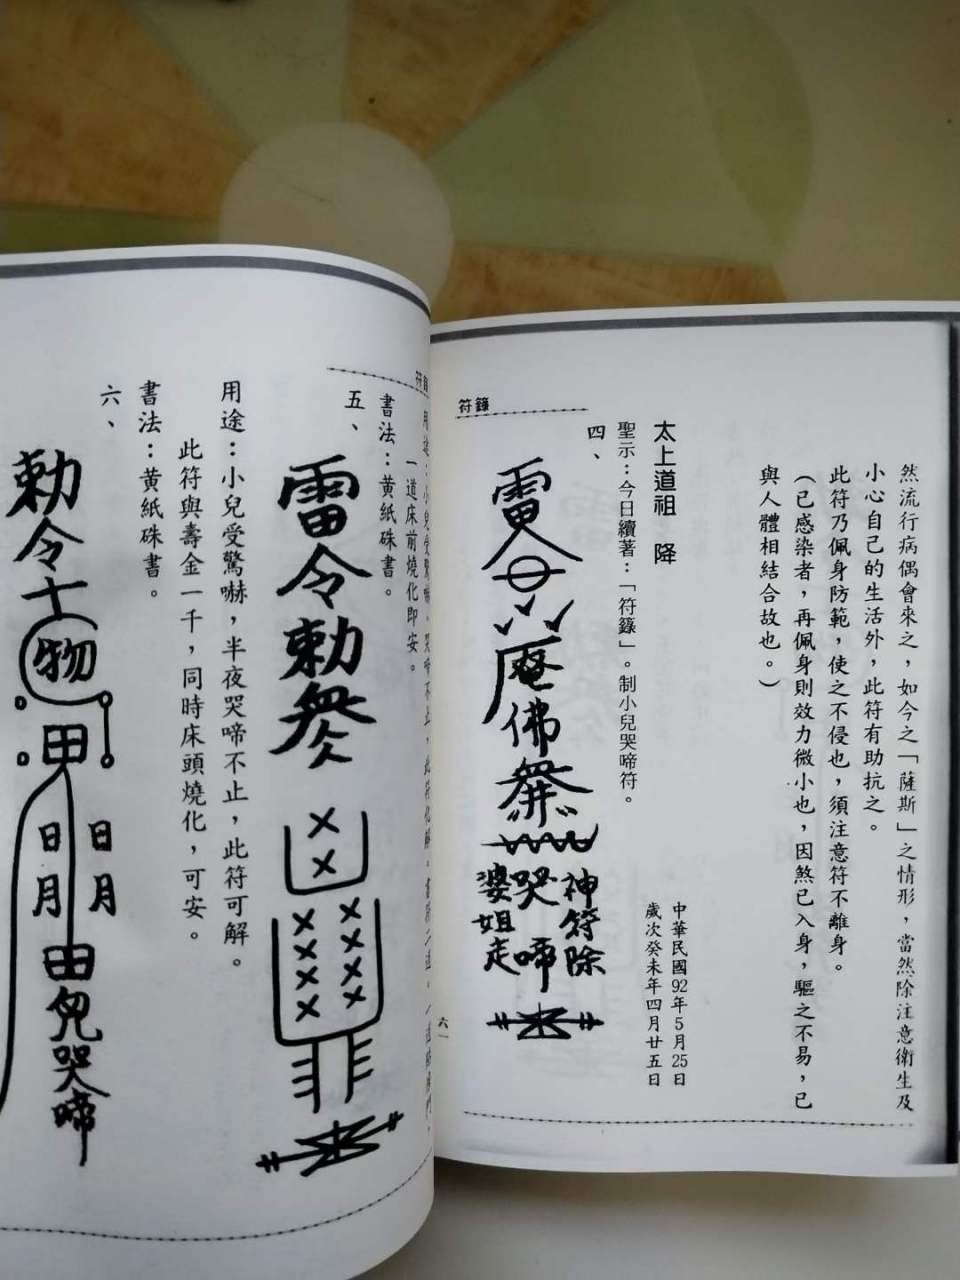 符籙
然流行病偶會來之，如今之「薩斯」之情形，當然除注意衛生及
小心自己的生活外，此符有助抗之。
此符乃佩身防範，使之不侵也，須注意符不離身。
（已感染者，再佩身則效力微小也，因煞已入身，驅之不易，已
與人體相結合故也。）
太上道祖 降
中華民國92年5月25日
歲次癸未年四月廿五日
聖示：今日續著：「符籙」。制小兒哭啼符。
四、
雷令
唵佛
神符除
哭啼
婆姐走
六一
符籙
用途：小兒受驚嚇，哭啼不止，此符化解。
一道床前燒化即安。
書法：黃紙硃書。
五、
雷令勅
用途：小兒受驚嚇，半夜哭啼不止，此符可解。
此符與壽金一千，同時床頭燒化，可安。
書法：黃紙硃書。
六、
勅令
物
甲
日月
日月
田
兒哭啼